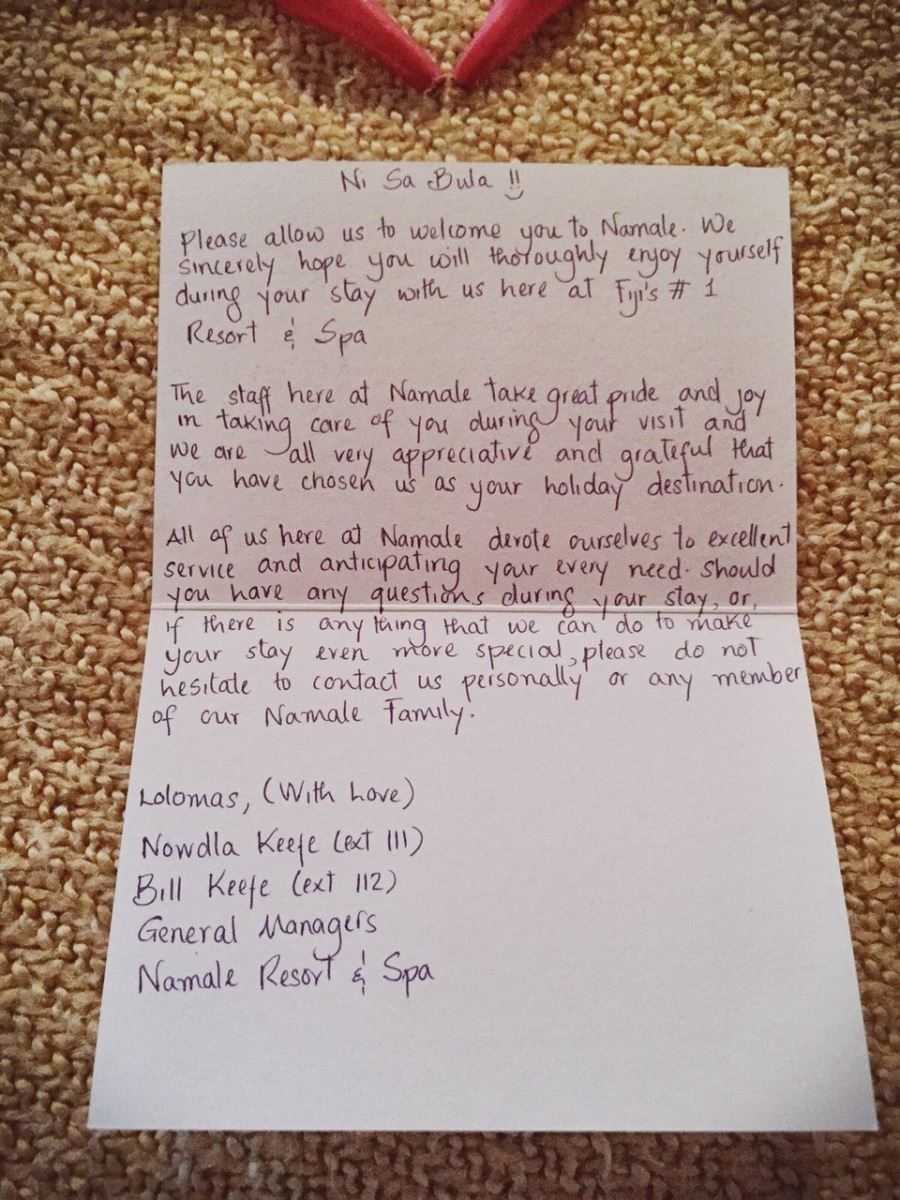 Ni Sa Bula !!
Please allow us to welcome you to Namale. We
sincerely hope you will thoroughly enjoy yourself
during your stay with us here at Fiji's # 1
Resort & Spa
The staff here at Namale take great pride and joy
in taking care of you during your visit and
we are all very appreciative and grateful that
you have chosen us as your holiday destination.
All of us here at Namale devote ourselves to excellent
service and anticipating your every need. Should
you have any questions during your stay, or,
if there is any thing that we can do to make
your stay even more special, please do not
hesitate to contact us personally or any member
of our Namale Family.
Lolomas, (With Love)
Nowdla Keefe (ext 111)
Bill Keefe (ext 112)
General Managers
Namale Resort & Spa